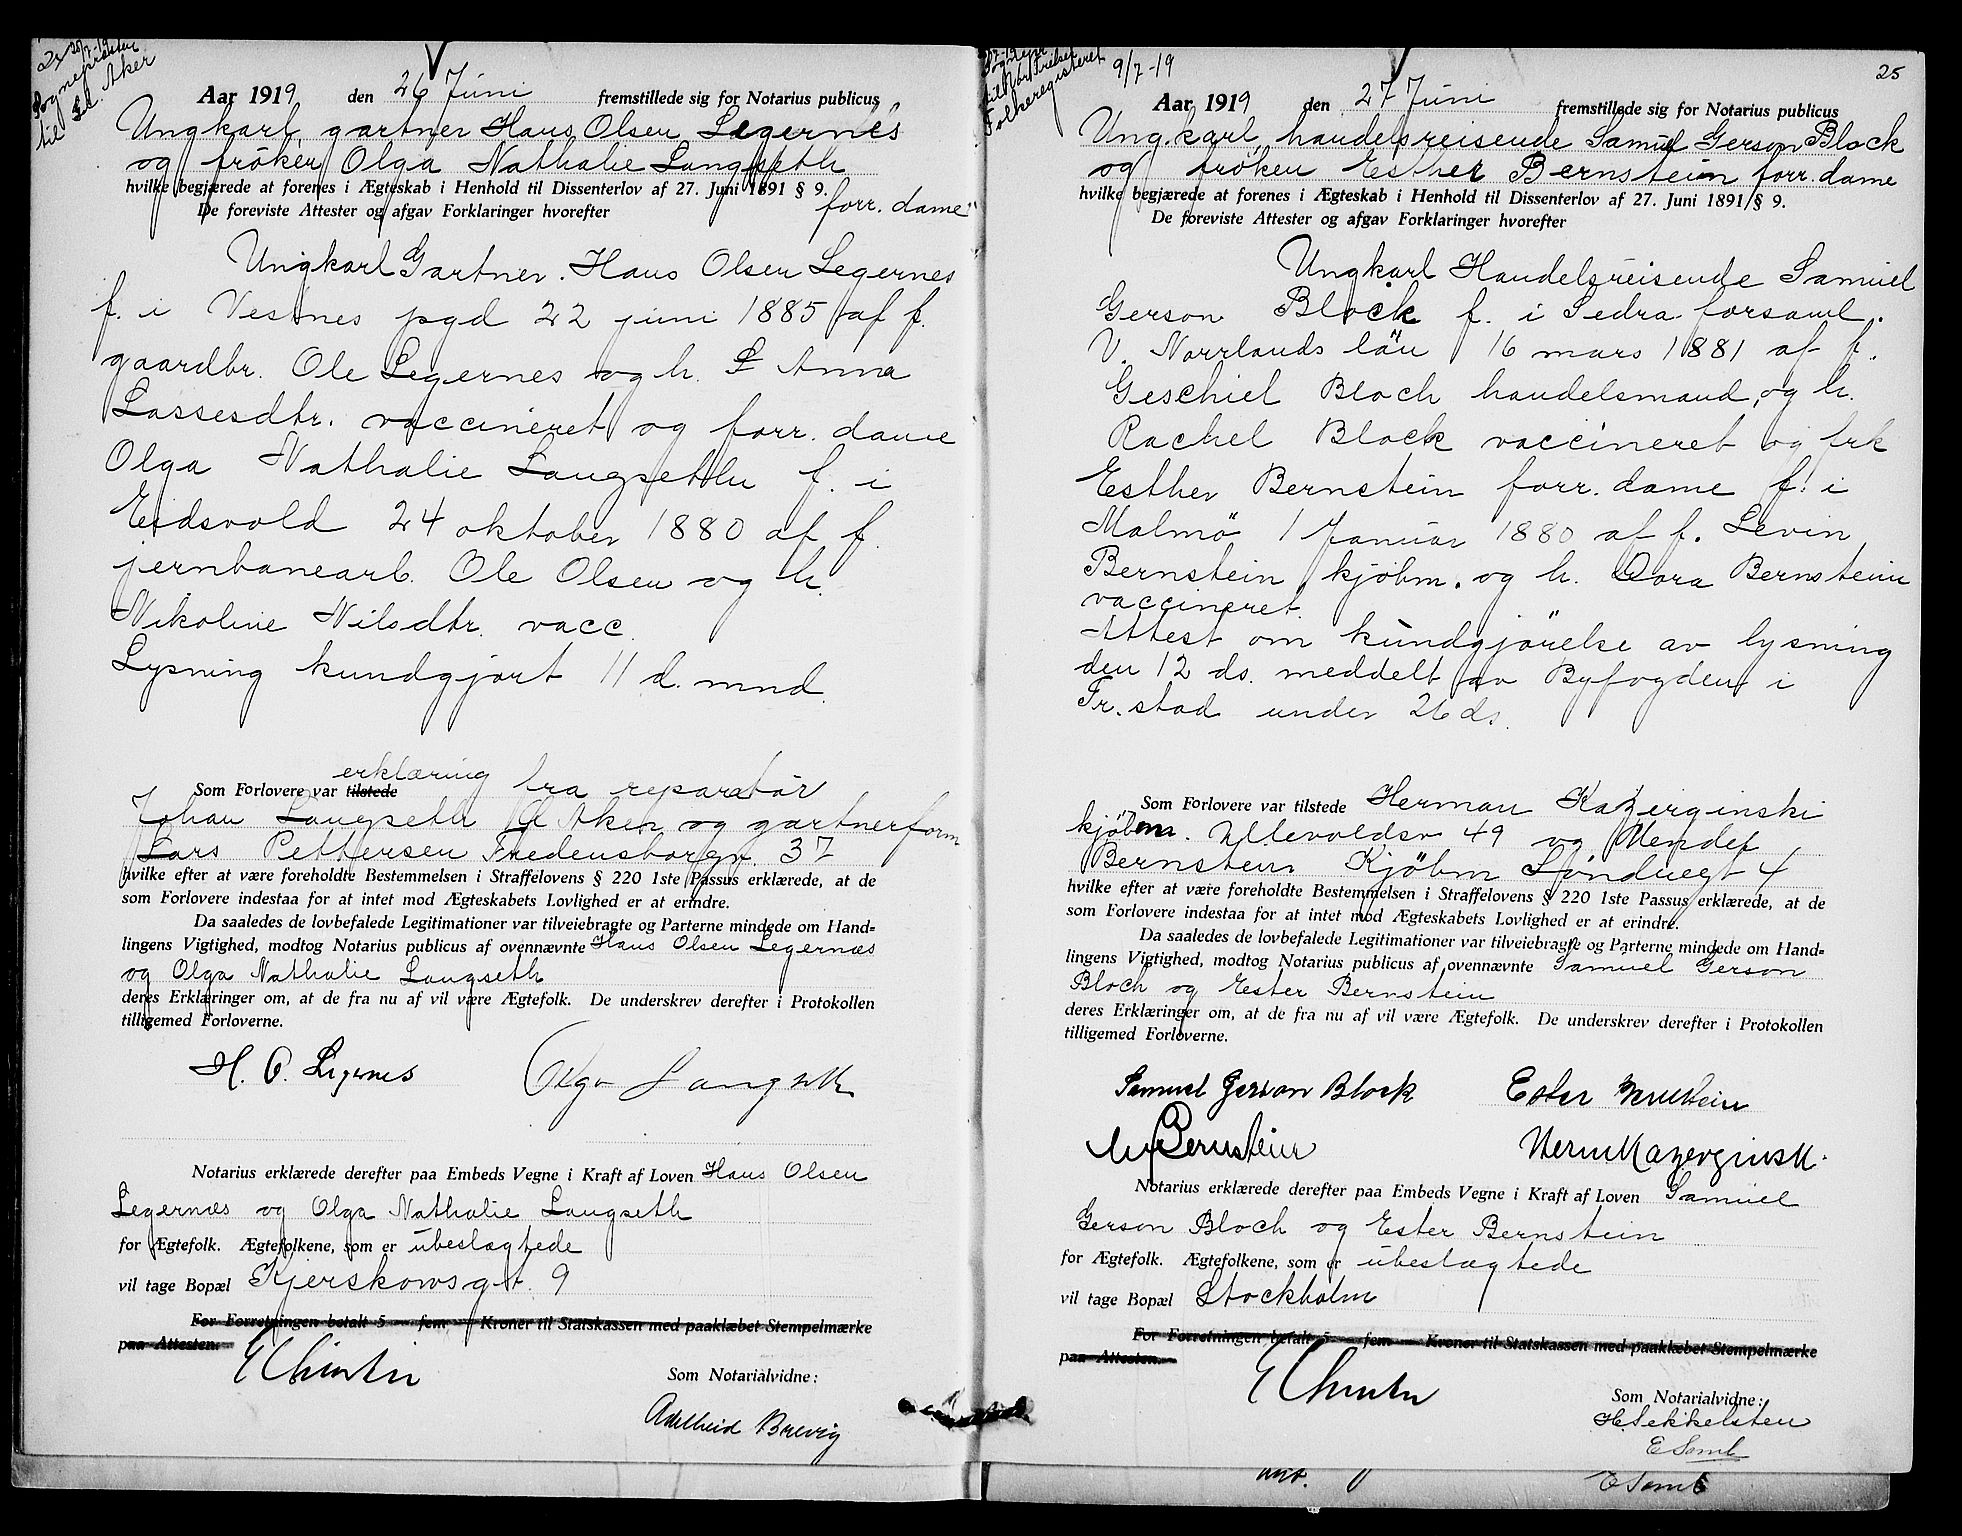 2x 20/7-19
Sogneprästen
til Ø. Aker
Aar 1919 den 26 Juni fremstillede sig for Notarius publicus
Ungkarl, gartner Haus Olsen Legernes
og fröken Olga Nathalie Langseth
hvilke begjærede at forenes i Ægteskab i Henhold til Dissenterlov af 27. Juni 1891 § 9.
forr. dame
De foreviste Attester og afgav Forklaringer hvorefter
Ungkarl Gartner. Hans Olsen Legernes
f. i Vestnes pgd 22 juni 1885 af f.
gaardbr. Ole Legernes og h. Anna
Lassesdtr. vaccineret og forr. dame
Olga Nathalie Langseth f. i
Eidsvold 24 oktober 1880 af f.
jernbanearb. Ole Olsen og h.
Nikoline Nilsdtr. vacc.
Lysning kundgjort 11 d. mnd.
erklæring fra reparatör
Som Forlovere var tilstede
Johan Langseth Ø Aker og gartnerform
Lars Pettersen Fredensborgv. 37
hvilke efter at være foreholdte Bestemmelsen i Straffelovens § 220 1ste Passus erklærede, at de
som Forlovere indestaa for at intet mod Ægteskabets Lovlighed er at erindre.
Da saaledes de lovbefalede Legitimationer var tilveiebragte og Parterne mindede om Hand=
lingens Vigtighed, modtog Notarius publicus af ovennævnte Hans Olsen Legernæs
og Olga Nathalie Langseth
deres Erklæringer om, at de fra nu af vil være Ægtefolk. De underskrev derefter i Protokollen
tilligemed Forloverne.
H. O. Legernes Olga Langseth
Notarius erklærede derefter paa Embeds Vegne i Kraft af Loven Hans Olsen
Legernæs og Olga Nathalie Langseth
for Ægtefolk. Ægtefolkene, som er ubeslægtede
vil tage Bopæl Kjerskowsgt. 9
For Forretningen betalt 5 fem Kroner til Statskassen med paaklæbet Stempelmærke
paa Attesten.
Som Notarialvidne:
Adelheid Brevig
Folkeregisteret
9/7-19
25
Aar 1919 den 27 Juni fremstillede sig for Notarius publicus
Ungkarl, handelsreisende Samuel Gerson Block
og fröken Esther Bernstein forr. dame
hvilke begjærede at forenes i Ægteskab i Henhold til Dissenterlov af 27. Juni 1891 § 9.
De foreviste Attester og afgav Forklaringer hvorefter
Ungkarl Handelsreisende Samuel
Gerson Block f. i Sedra forsaml.
V. Norrlands län 16 mars 1881 af f.
Geschiel Bloch handelsmand, og h.
Rachel Block vaccineret og frk
Esther Bernstein forr. dame f. i
Malmö 1 Januar 1880 af f. Levin
Bernstein kjöbm. og h. Dora Bernstein
vaccineret.
Attest om kundgjörelse av lysning
den 12 ds. meddelt av Byfogden i
Fr.stad under 26 ds.
Som Forlovere var tilstede Herman Kazerginski
kjöbm. Ullevoldsv 49 og Mendel
Bernstein Kjöbm Söndregt 4
hvilke efter at være foreholdte Bestemmelsen i Straffelovens § 220 1ste Passus erklærede, at de
som Forlovere indestaa for at intet mod Ægteskabets Lovlighed er at erindre.
Da saaledes de lovbefalede Legitimationer var tilveiebragte og Parterne mindede om Hand=
lingens Vigtighed, modtog Notarius publicus af ovennævnte Samuel Gerson
Bloch og Ester Bernstein
deres Erklæringer om, at de fra nu af vil være Ægtefolk. De underskrev derefter i Protokollen
tilligemed Forloverne.
Samuel Gerson Block Ester Bernstein
M Bernstein Herm Kazerginski.
Notarius erklærede derefter paa Embeds Vegne i Kraft af Loven Samuel
Gerson Bloch og Ester Bernstein
for Ægtefolk. Ægtefolkene, som er ubeslægtede
vil tage Bopæl Stockholm
For Forretningen betalt 5 fem Kroner til Statskassen med paaklæbet Stempelmærke
paa Attesten.
Som Notarialvidne:
H. Sekkelsten